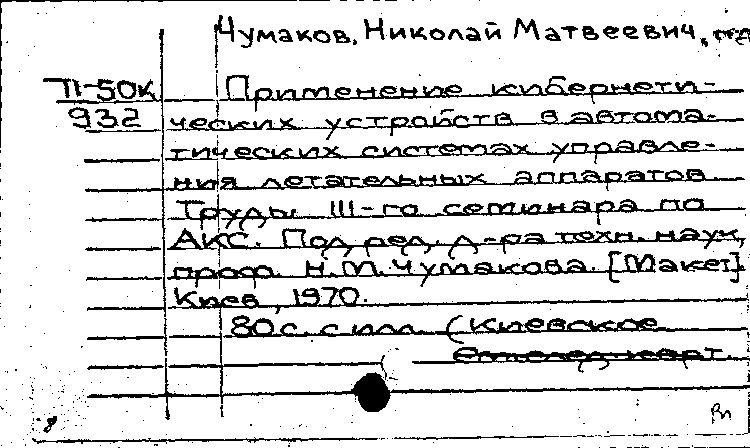 Чумаков, Николай Матвеевич, ред
П-50К Применение кибернети-
932 ческих устройств в автома-
тических системах управле-
ния летательных аппаратов
Труды III-го семинара по
АКС. Под ред. д-ра техн. наук,
проф. Н.М. Чумакова. [Макет].
Киев, 1970.
80 с. с илл. (Киевское
8